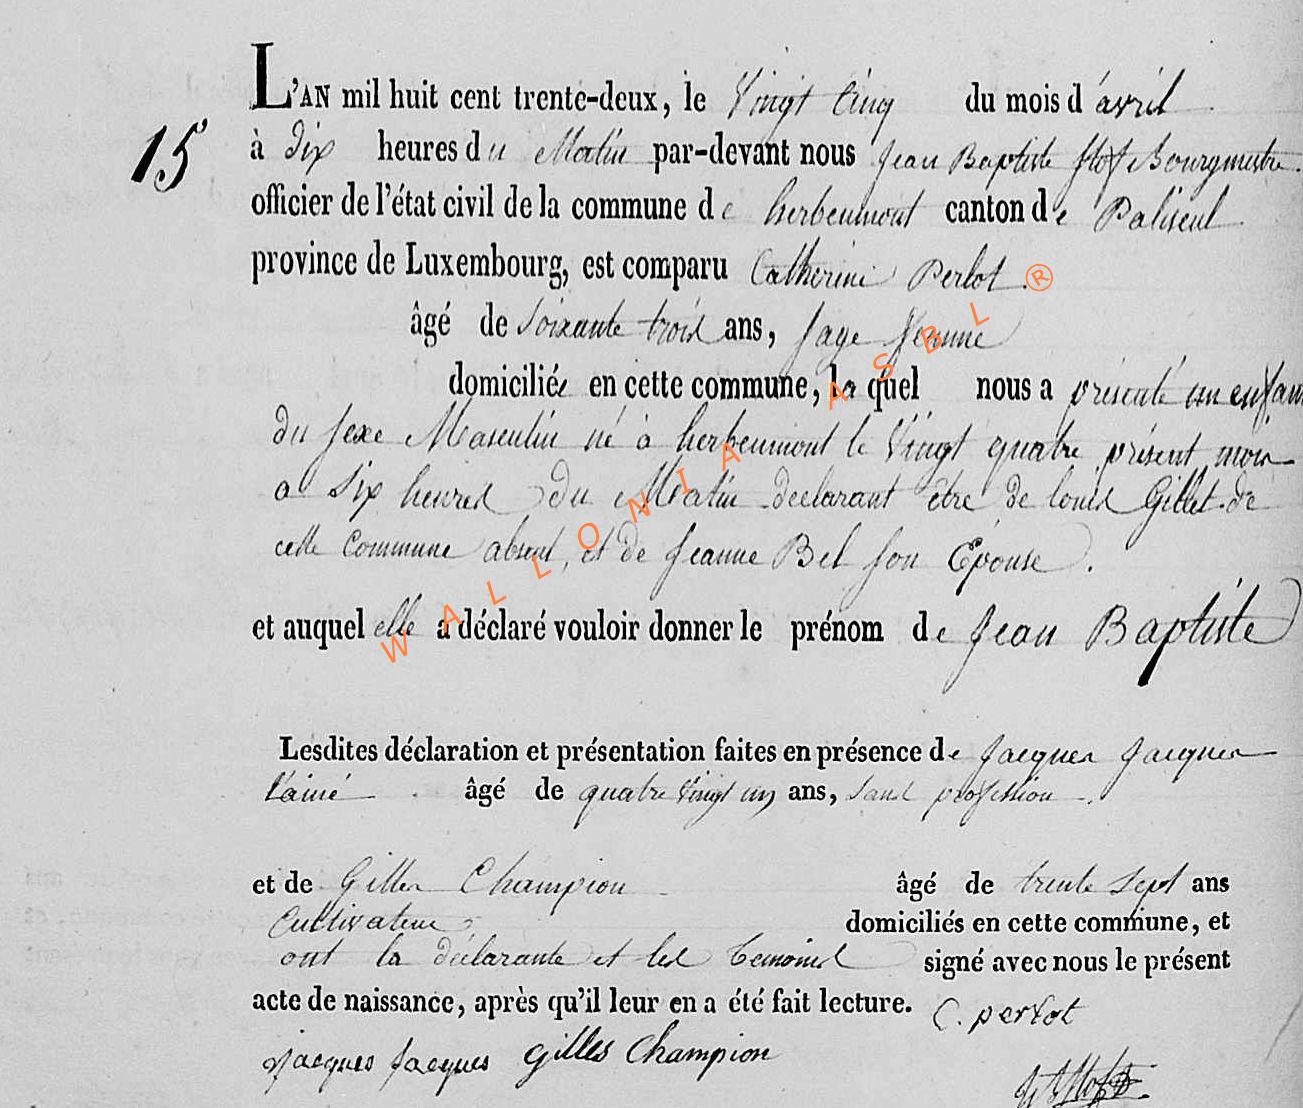 L'AN mil huit cent trente-deux, le Vingt Cinq du mois d'avril
15
à Dix heures du Matin par-devant nous Jean Baptiste Bourgmestre
officier de l'état civil de la commune de herbeumont canton de Paliseul
province de Luxembourg, est comparu Catherine Perlot ®
âgé de Soixante trois ans, Sage femme
domiciliée en cette commune, la quel nous a présenté un enfant
du Sexe Masculin né à herbeumont le Vingt quatre présent mois
a Six heures Du Matin declarant être de louis Gillet de
cette Commune absent, et de Jeanne Bel son Epouse.
et auquel elle a déclaré vouloir donner le prénom de Jean Baptiste
WALLONIA ASBL
Lesdites déclaration et présentation faites en présence de Jacques Jacques
l'ainé âgé de quatre Vingt un ans, Sans profession.
et de Gilles Champion âgé de trente Sept ans
Cultivateur domiciliés en cette commune, et
ont la déclarante et les temoins signé avec nous le présent
acte de naissance, après qu'il leur en a été fait lecture. C. perlot
Jacques Jacques Gilles Champion